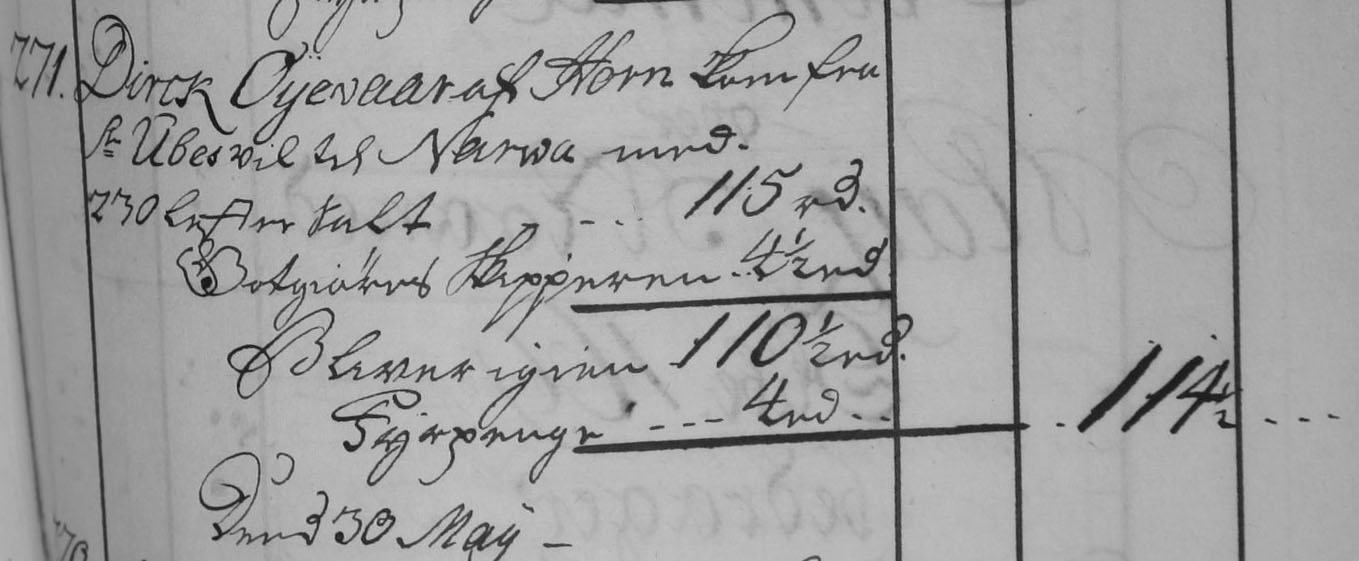 271. Dirck Oÿevaar af Horn kom fra
St Ubes vil til Narwa med.
230 Lester Salt - - - 115 rd.
Gotgiöres Skipperen - 4½ rd
Bliver igien 110½ rd.
Fÿrpenge - - - 4 rd - - . 114½ - - -
Dend 30 Maÿ -